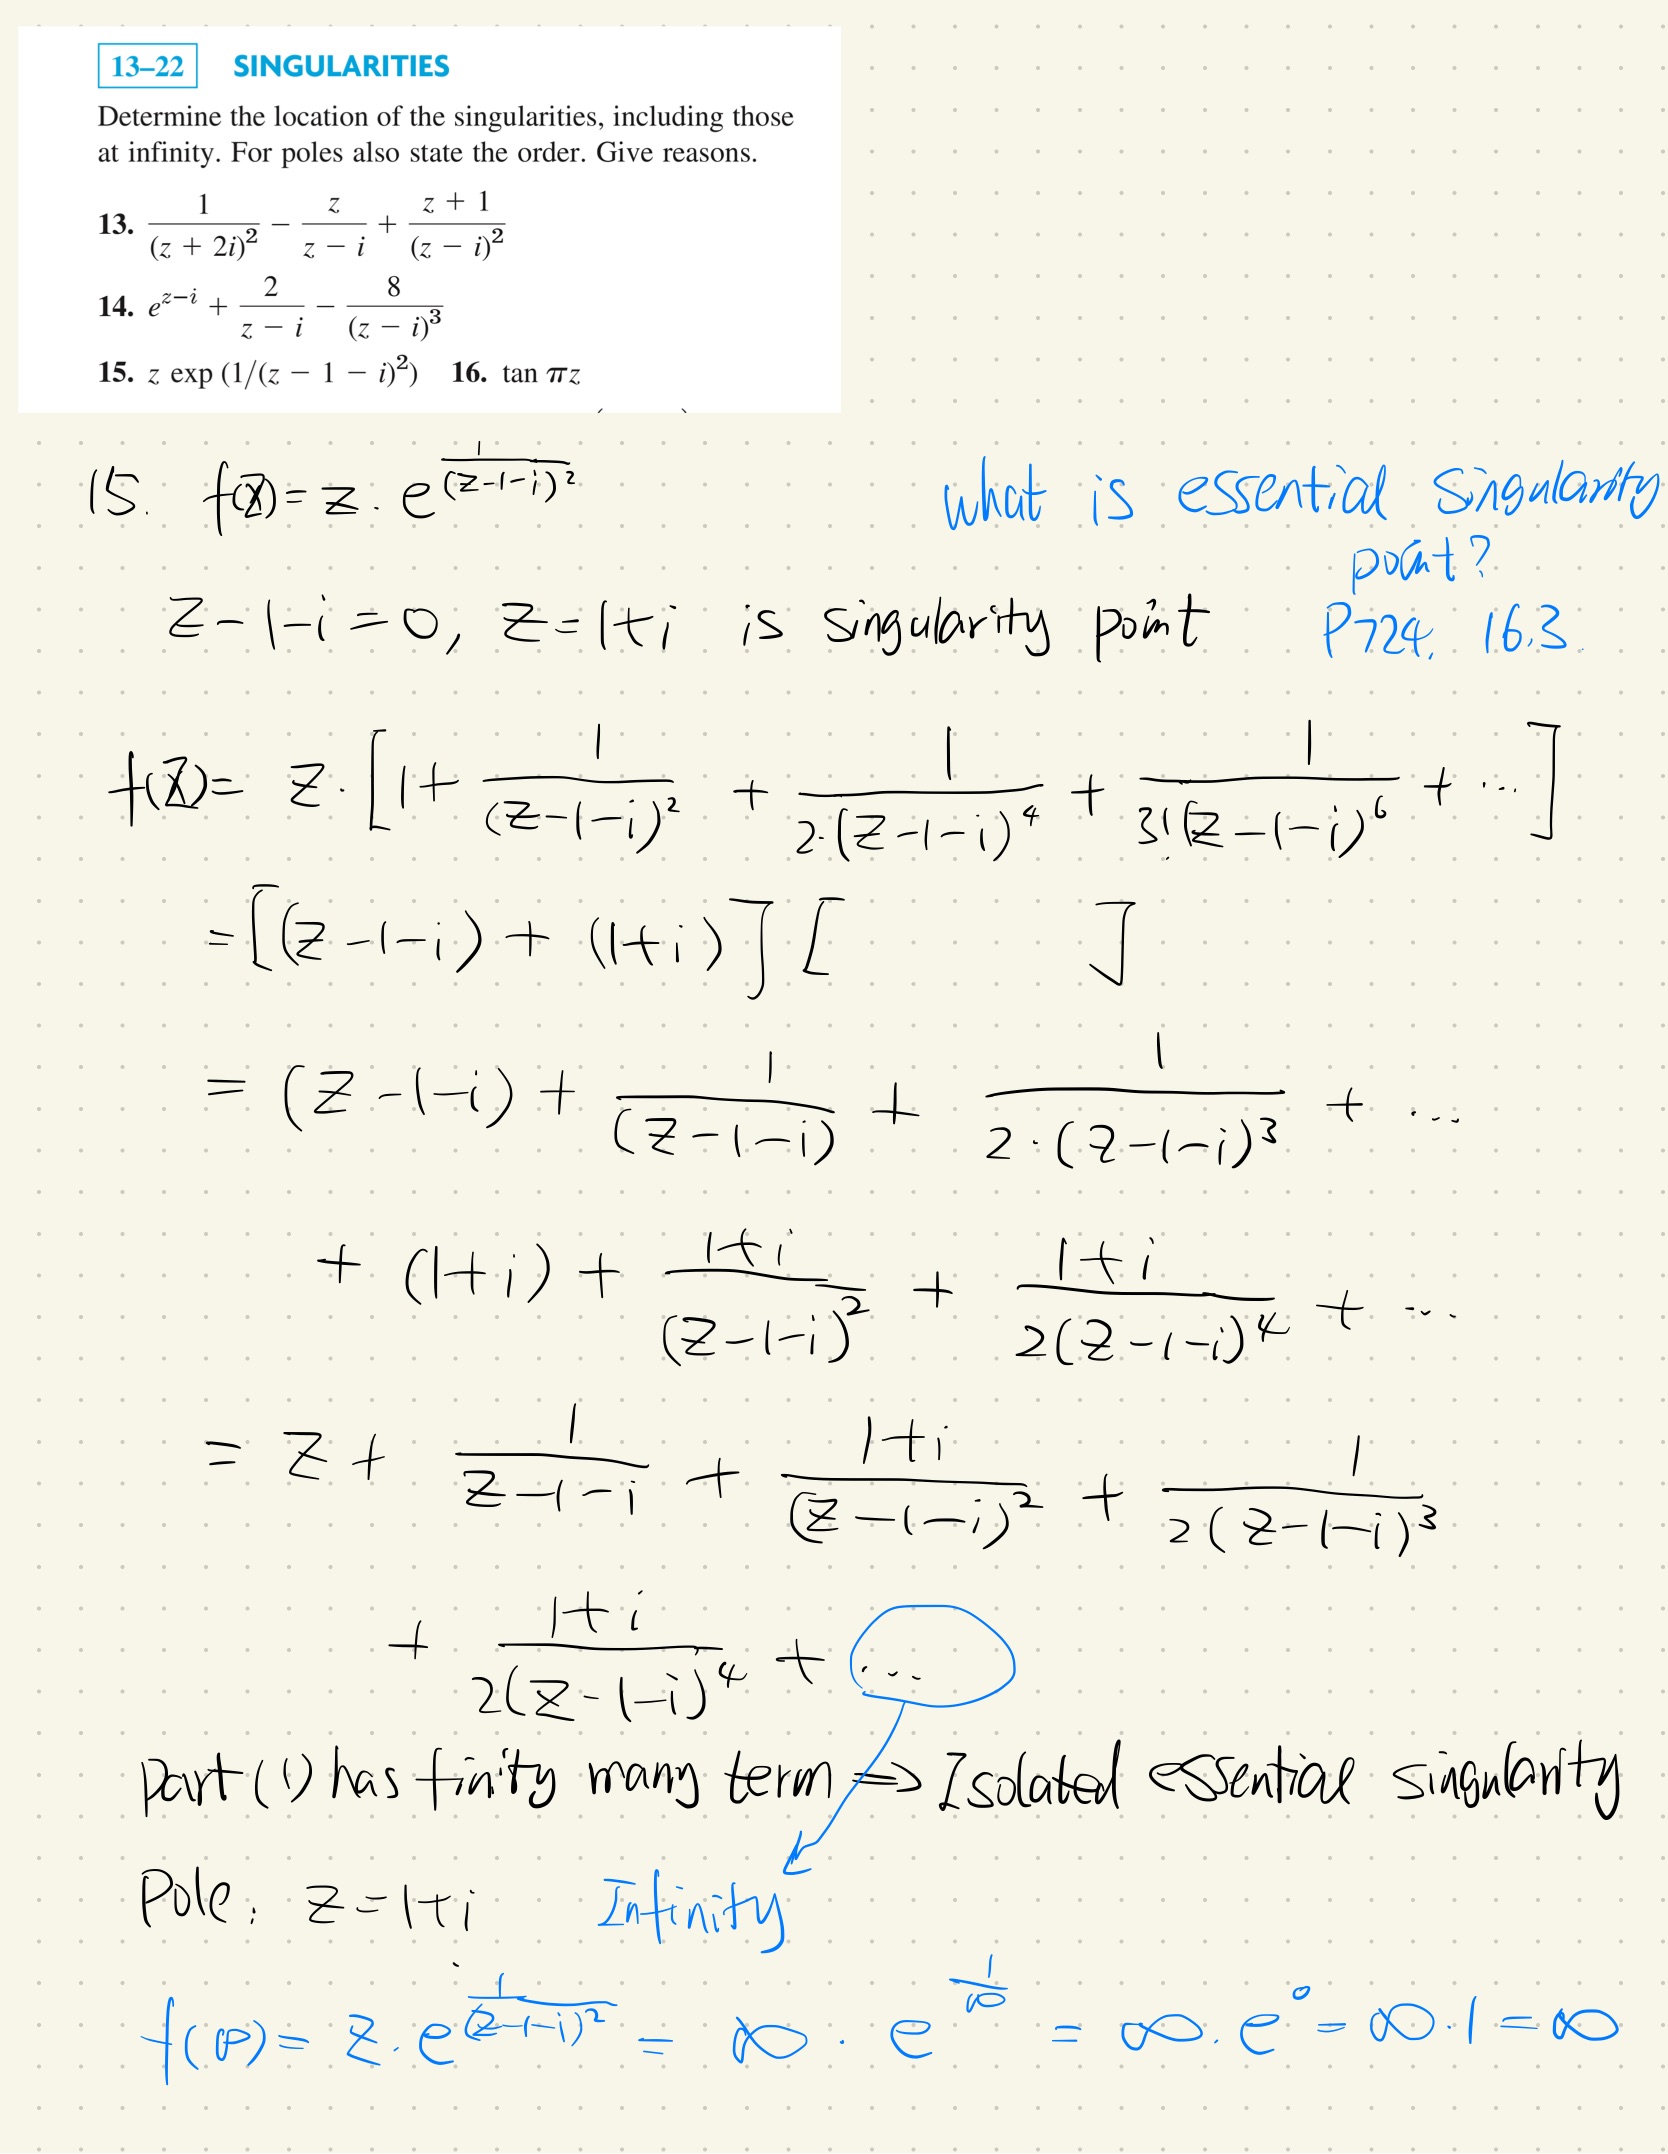 13–22 SINGULARITIES
Determine the location of the singularities, including those
at infinity. For poles also state the order. Give reasons.
13. 1/(z + 2i)² − z/(z − i) + (z + 1)/(z − i)²
14. e^(z−i) + 2/(z − i) − 8/(z − i)³
15. z exp (1/(z − 1 − i)²) 16. tan πz
15. f(z) = z · e^(1/(z-1-i)²)
what is essential singularity
point?
z-1-i=0, z=1+i is singularity point
P724. 16.3
f(z) = z · [1 + 1/(z-1-i)² + 1/(2·(z-1-i)⁴) + 1/(3!(z-1-i)⁶) + ...]
= [(z-1-i) + (1+i)] [ ]
= (z-1-i) + 1/(z-1-i) + 1/(2·(z-1-i)³) + ...
+ (1+i) + (1+i)/(z-1-i)² + (1+i)/(2(z-1-i)⁴) + ...
= z + 1/(z-1-i) + (1+i)/(z-1-i)² + 1/(2(z-1-i)³)
+ (1+i)/(2(z-1-i)⁴) + ...
part (1) has finity many term => Isolated essential singularity
Pole: z=1+i Infinity
f(∞) = z · e^(1/(z-1-i)²) = ∞ · e^(1/∞) = ∞ · e⁰ = ∞ · 1 = ∞